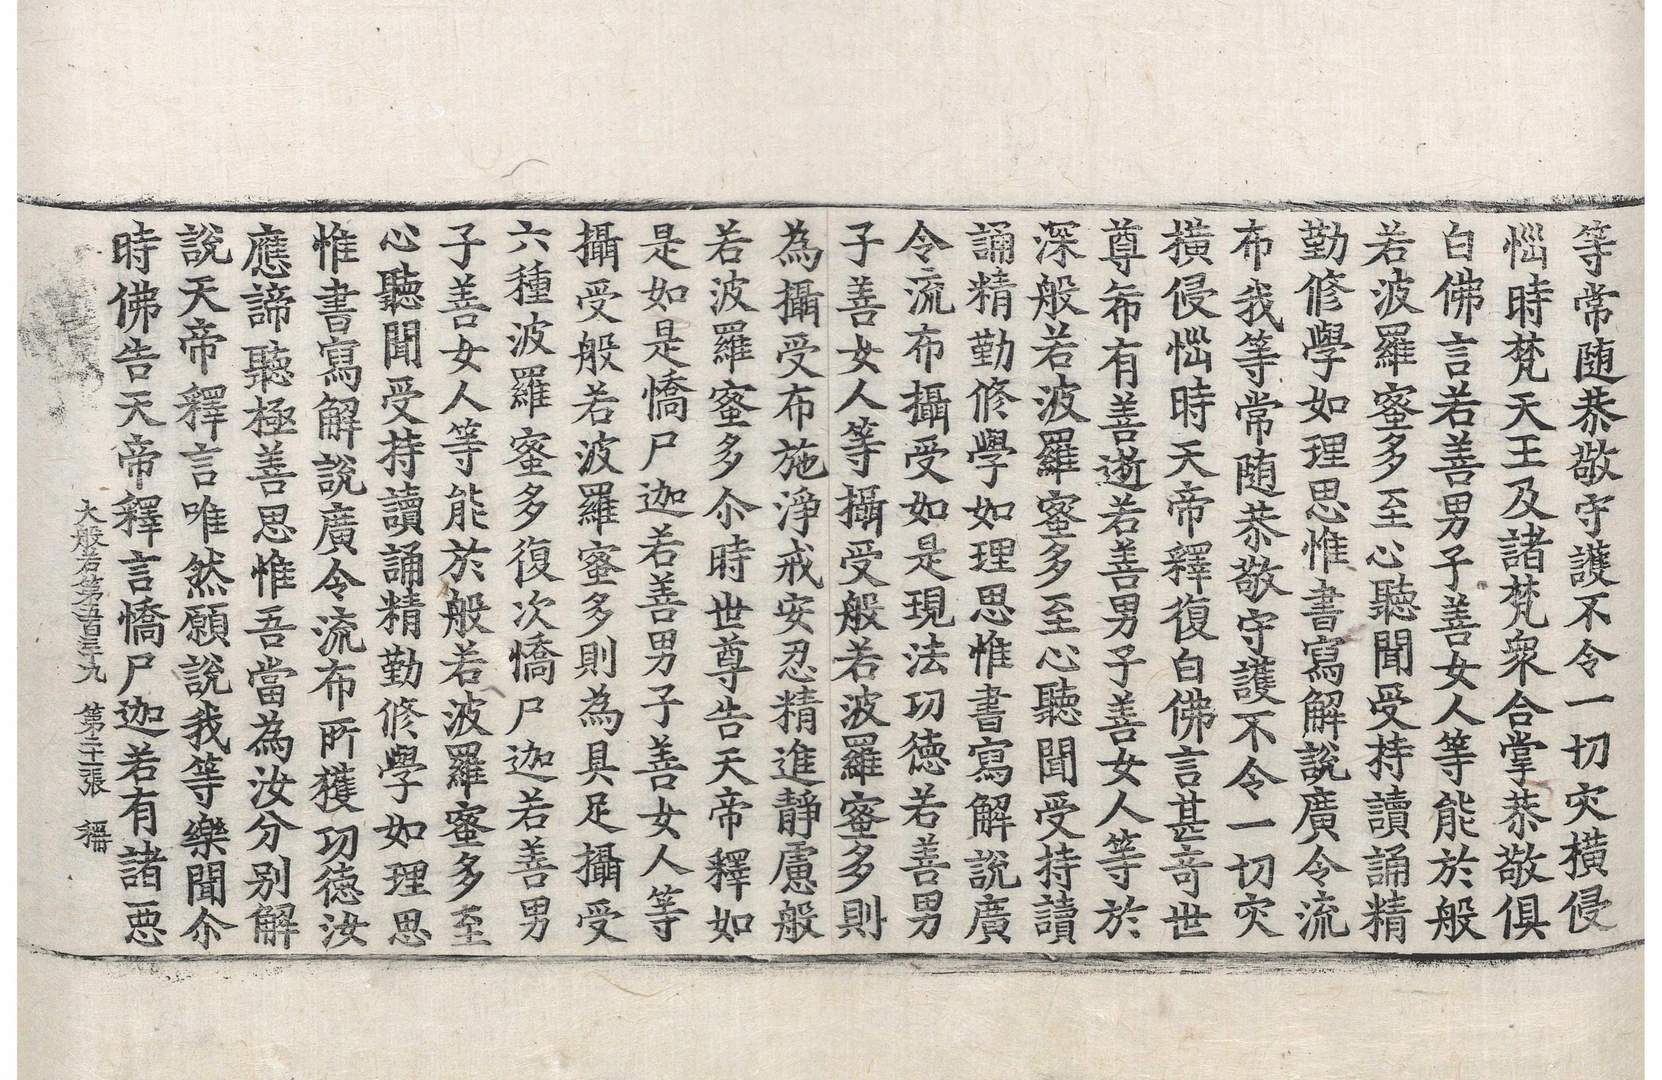 等常随恭敬守護不令一切灾横侵
惱時梵天王及諸梵衆合掌恭敬俱
白佛言若善男子善女人等能於般
若波羅蜜多至心聽聞受持讀誦精
勤修學如理思惟書寫解說廣令流
布我等常随恭敬守護不令一切灾
横侵惱時天帝釋復白佛言甚奇世
尊希有善逝若善男子善女人等於
深般若波羅蜜多至心聽聞受持讀
誦精勤修學如理思惟書寫解說廣
令流布攝受如是現法功德若善男
子善女人等攝受般若波羅蜜多則
為攝受布施淨戒安忍精進靜慮般
若波羅蜜多尒時世尊告天帝釋如
是如是憍尸迦若善男子善女人等
攝受般若波羅蜜多則為具足攝受
六種波羅蜜多復次憍尸迦若善男
子善女人等能於般若波羅蜜多至
心聽聞受持讀誦精勤修學如理思
惟書寫解說廣令流布所獲功德汝
應諦聽極善思惟吾當為汝分別解
說天帝釋言唯然願說我等樂聞尒
時佛告天帝釋言憍尸迦若有諸惡
大般若第五百三十九 第二十一張 稱